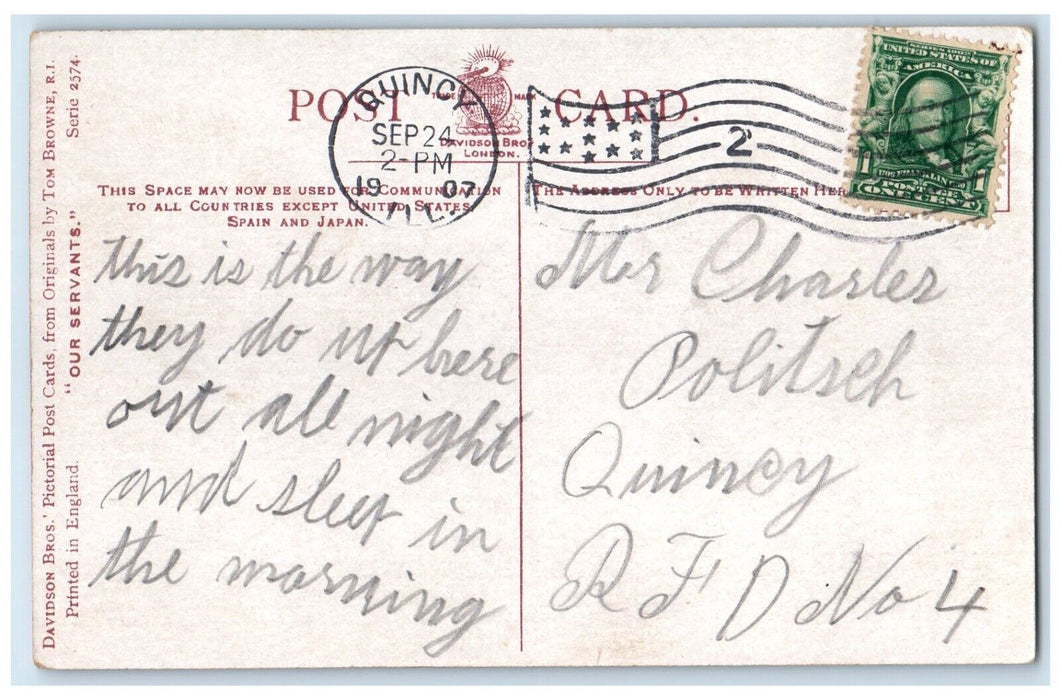 POST CARD.
TRADE MARK
DAVIDSON BROS
LONDON.
QUINCY
SEP 24
2-PM
1907
ILL.
2
SERIES 1902
UNITED STATES OF
AMERICA
1706 FRANKLIN 1790
POSTAGE
1 ONE CENT 1
THIS SPACE MAY NOW BE USED FOR COMMUNICATION
TO ALL COUNTRIES EXCEPT UNITED STATES,
SPAIN AND JAPAN.
THE ADDRESS ONLY TO BE WRITTEN HERE
this is the way
they do up here
out all night
and sleep in
the morning
Mr Charles
Politsch
Quincy
R F D No 4
DAVIDSON BROS.' Pictorial Post Cards, from Originals by TOM BROWNE, R.I.
Printed in England. "OUR SERVANTS." Serie 2574.